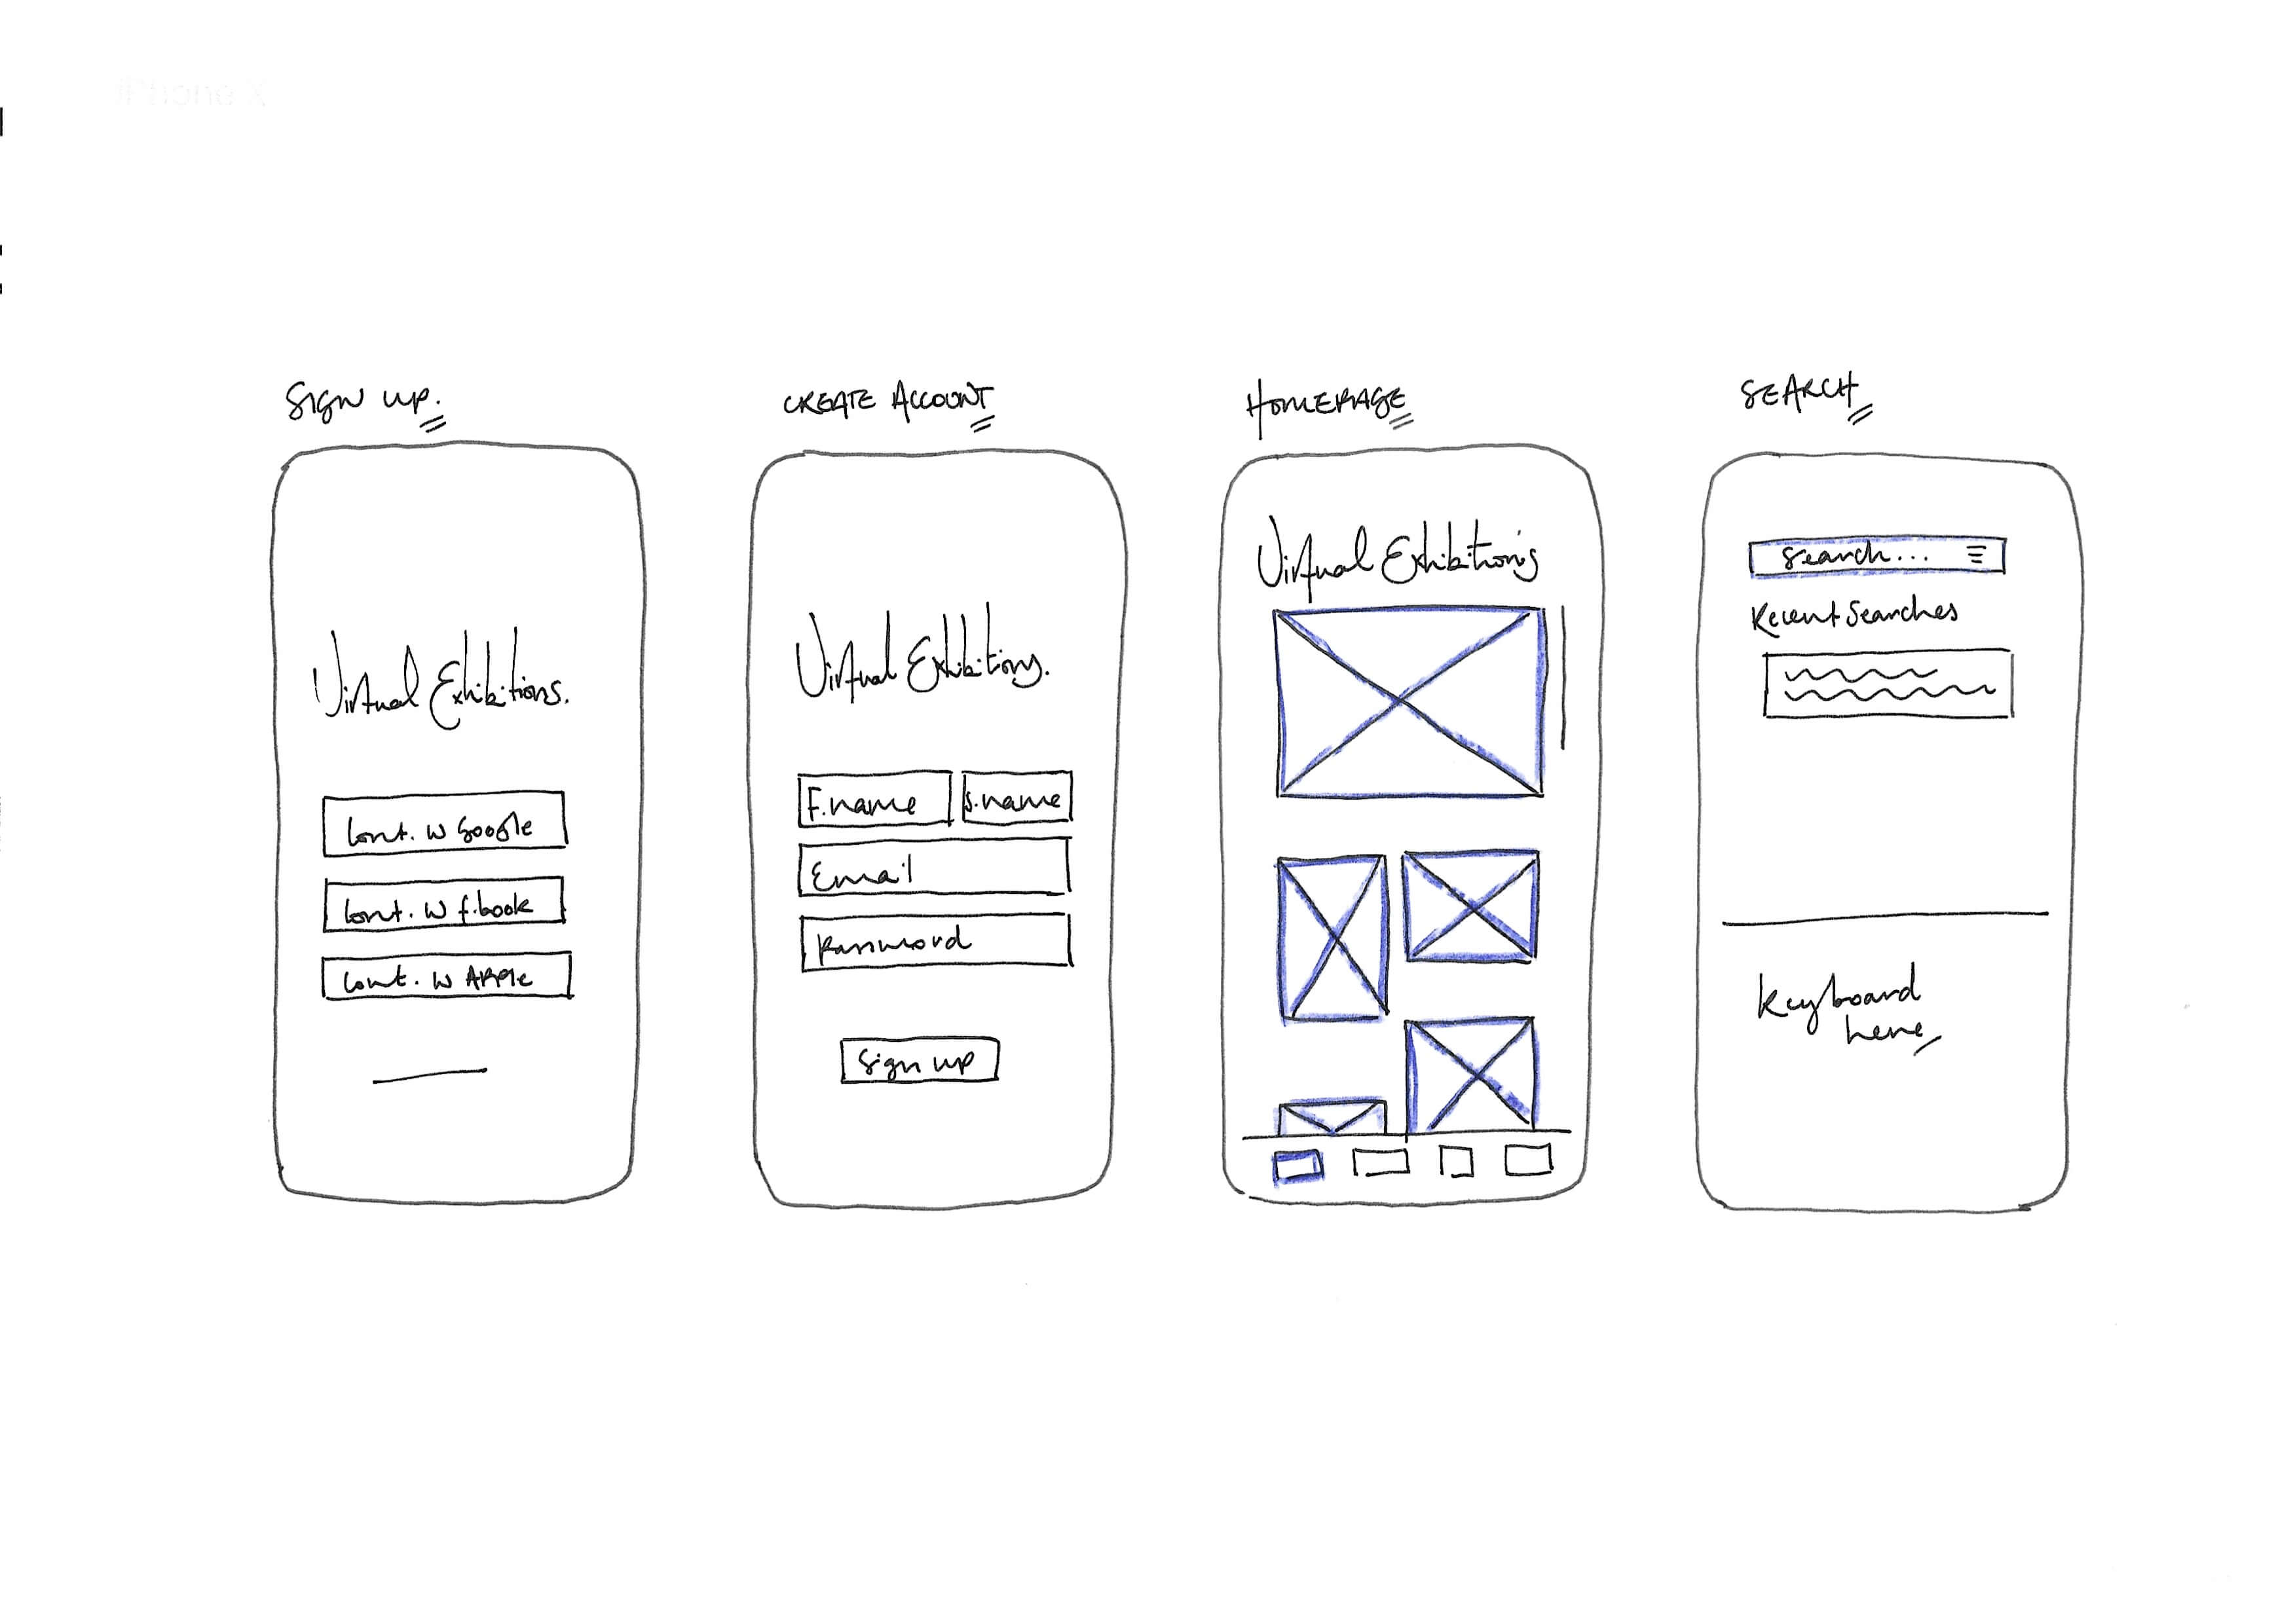 iPhone X
SIGN UP.
Virtual Exhibitions.
Cont. W Google
Cont. W f.book
Cont. W APPle
CREATE ACCOUNT
Virtual Exhibitions.
F.name
S.name
Email
Password
Sign up
HOMEPAGE
Virtual Exhibitions
SEARCH
Search...
Recent Searches
Keyboard
here